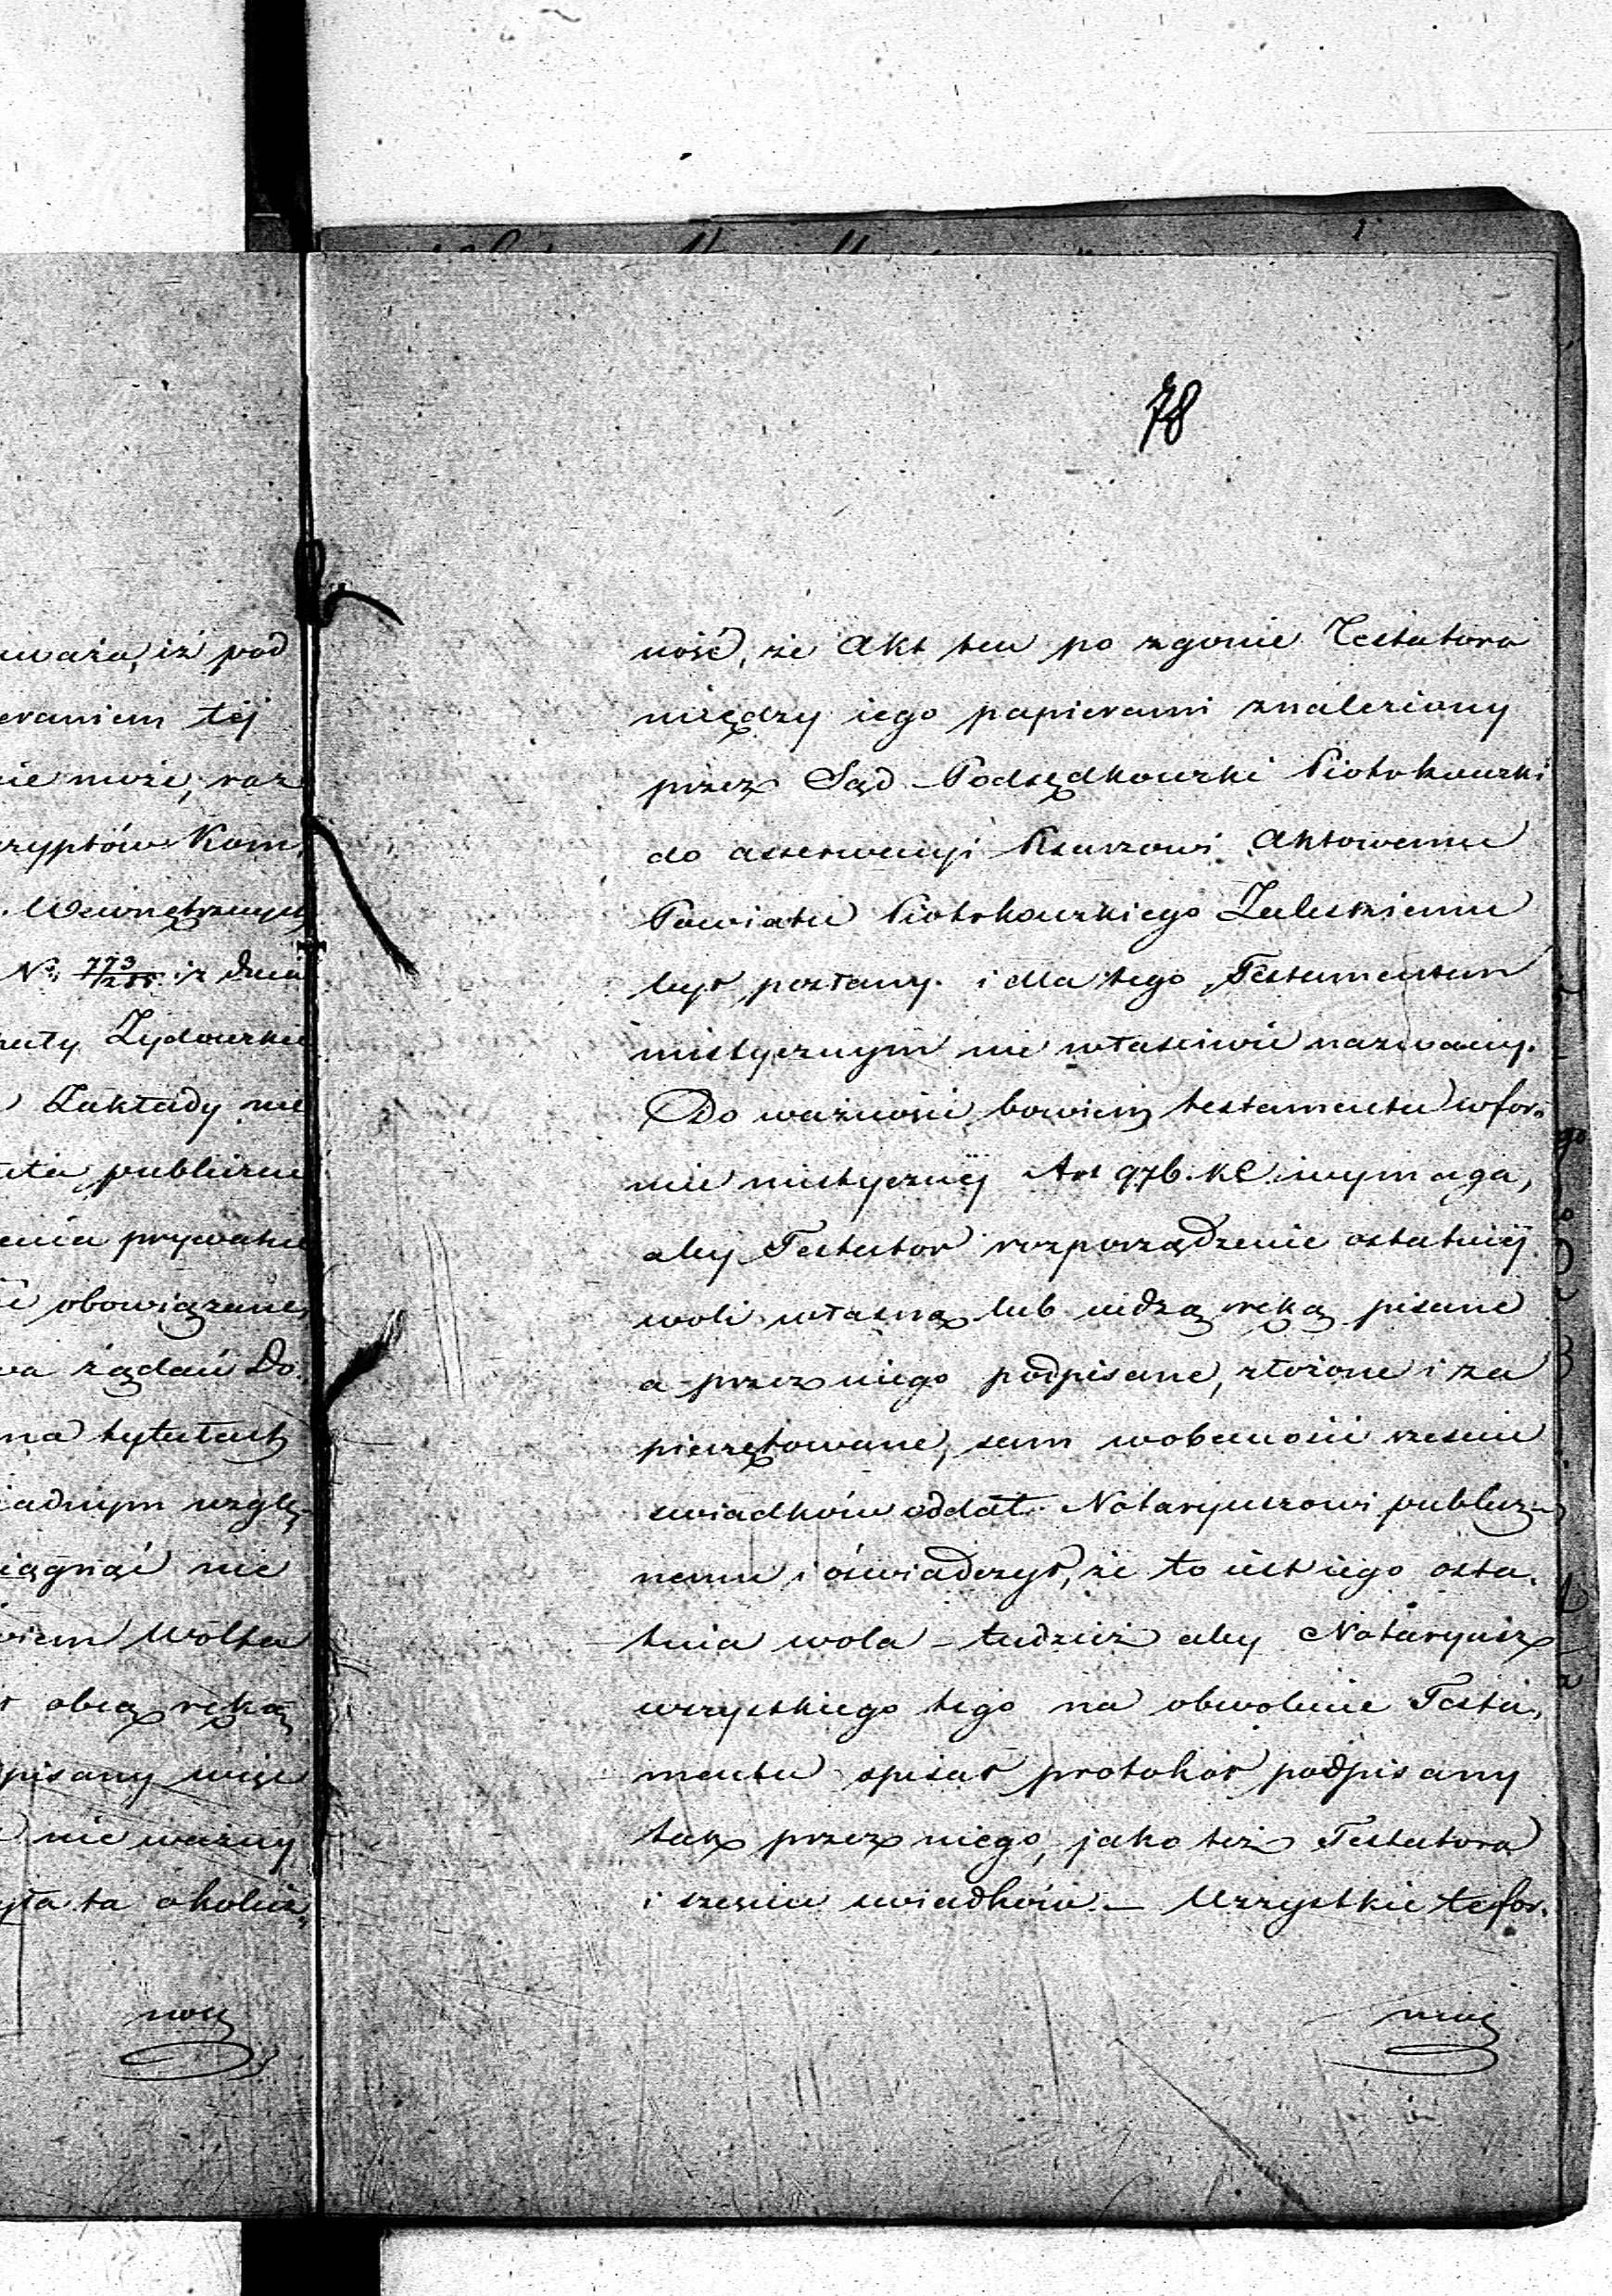 uważa, iż pod
eraniem téj
ie może, raz
ryptów Kom.
Wewnętrznych
No 773/1255 iz dnia
Żydowskie
Zakłady nie
publiczne
enia prywatne
obowiązane,
wa żądań Do.
na tytułach
iadnym wzglę-
iągnąć nie
wiem Wolta
obcą ręką
pisany więc
nie ważny
yła ta okolicz„
ność
78
ność, że Akt ten po zgonie Testatora
między iego papierami znaleziony
przez Sąd Podsędkowski Piotrkowski
do asserwacyi Pisarzowi Aktowemu
Powiatu Piotrkowskiego Zaleskiemu
był posłany. i dla tego Testamentem
mistycznym nie właściwie nazwany.
Do ważności bowiem testamentu w for„
mie mistycznéj Art 976. KC. wymaga,
aby Testator rozporządzenie ostatniéj
woli własną lub cudzą ręką pisane
a przez niego podpisane, złożone i za
pieczętowane, sam w obecności sześciu
swiadków oddał Notaryuszowi publicz„
nemu i oświadczył, że to iest iego osta„
tnia wola – tudzież aby Notaryusz
wszystkiego tego na obwolucie Testa„
mentu spisał protokół podpisany
tak przez niego, jako też Testatora
i sześciu swiadków. — Wszystkie te for„